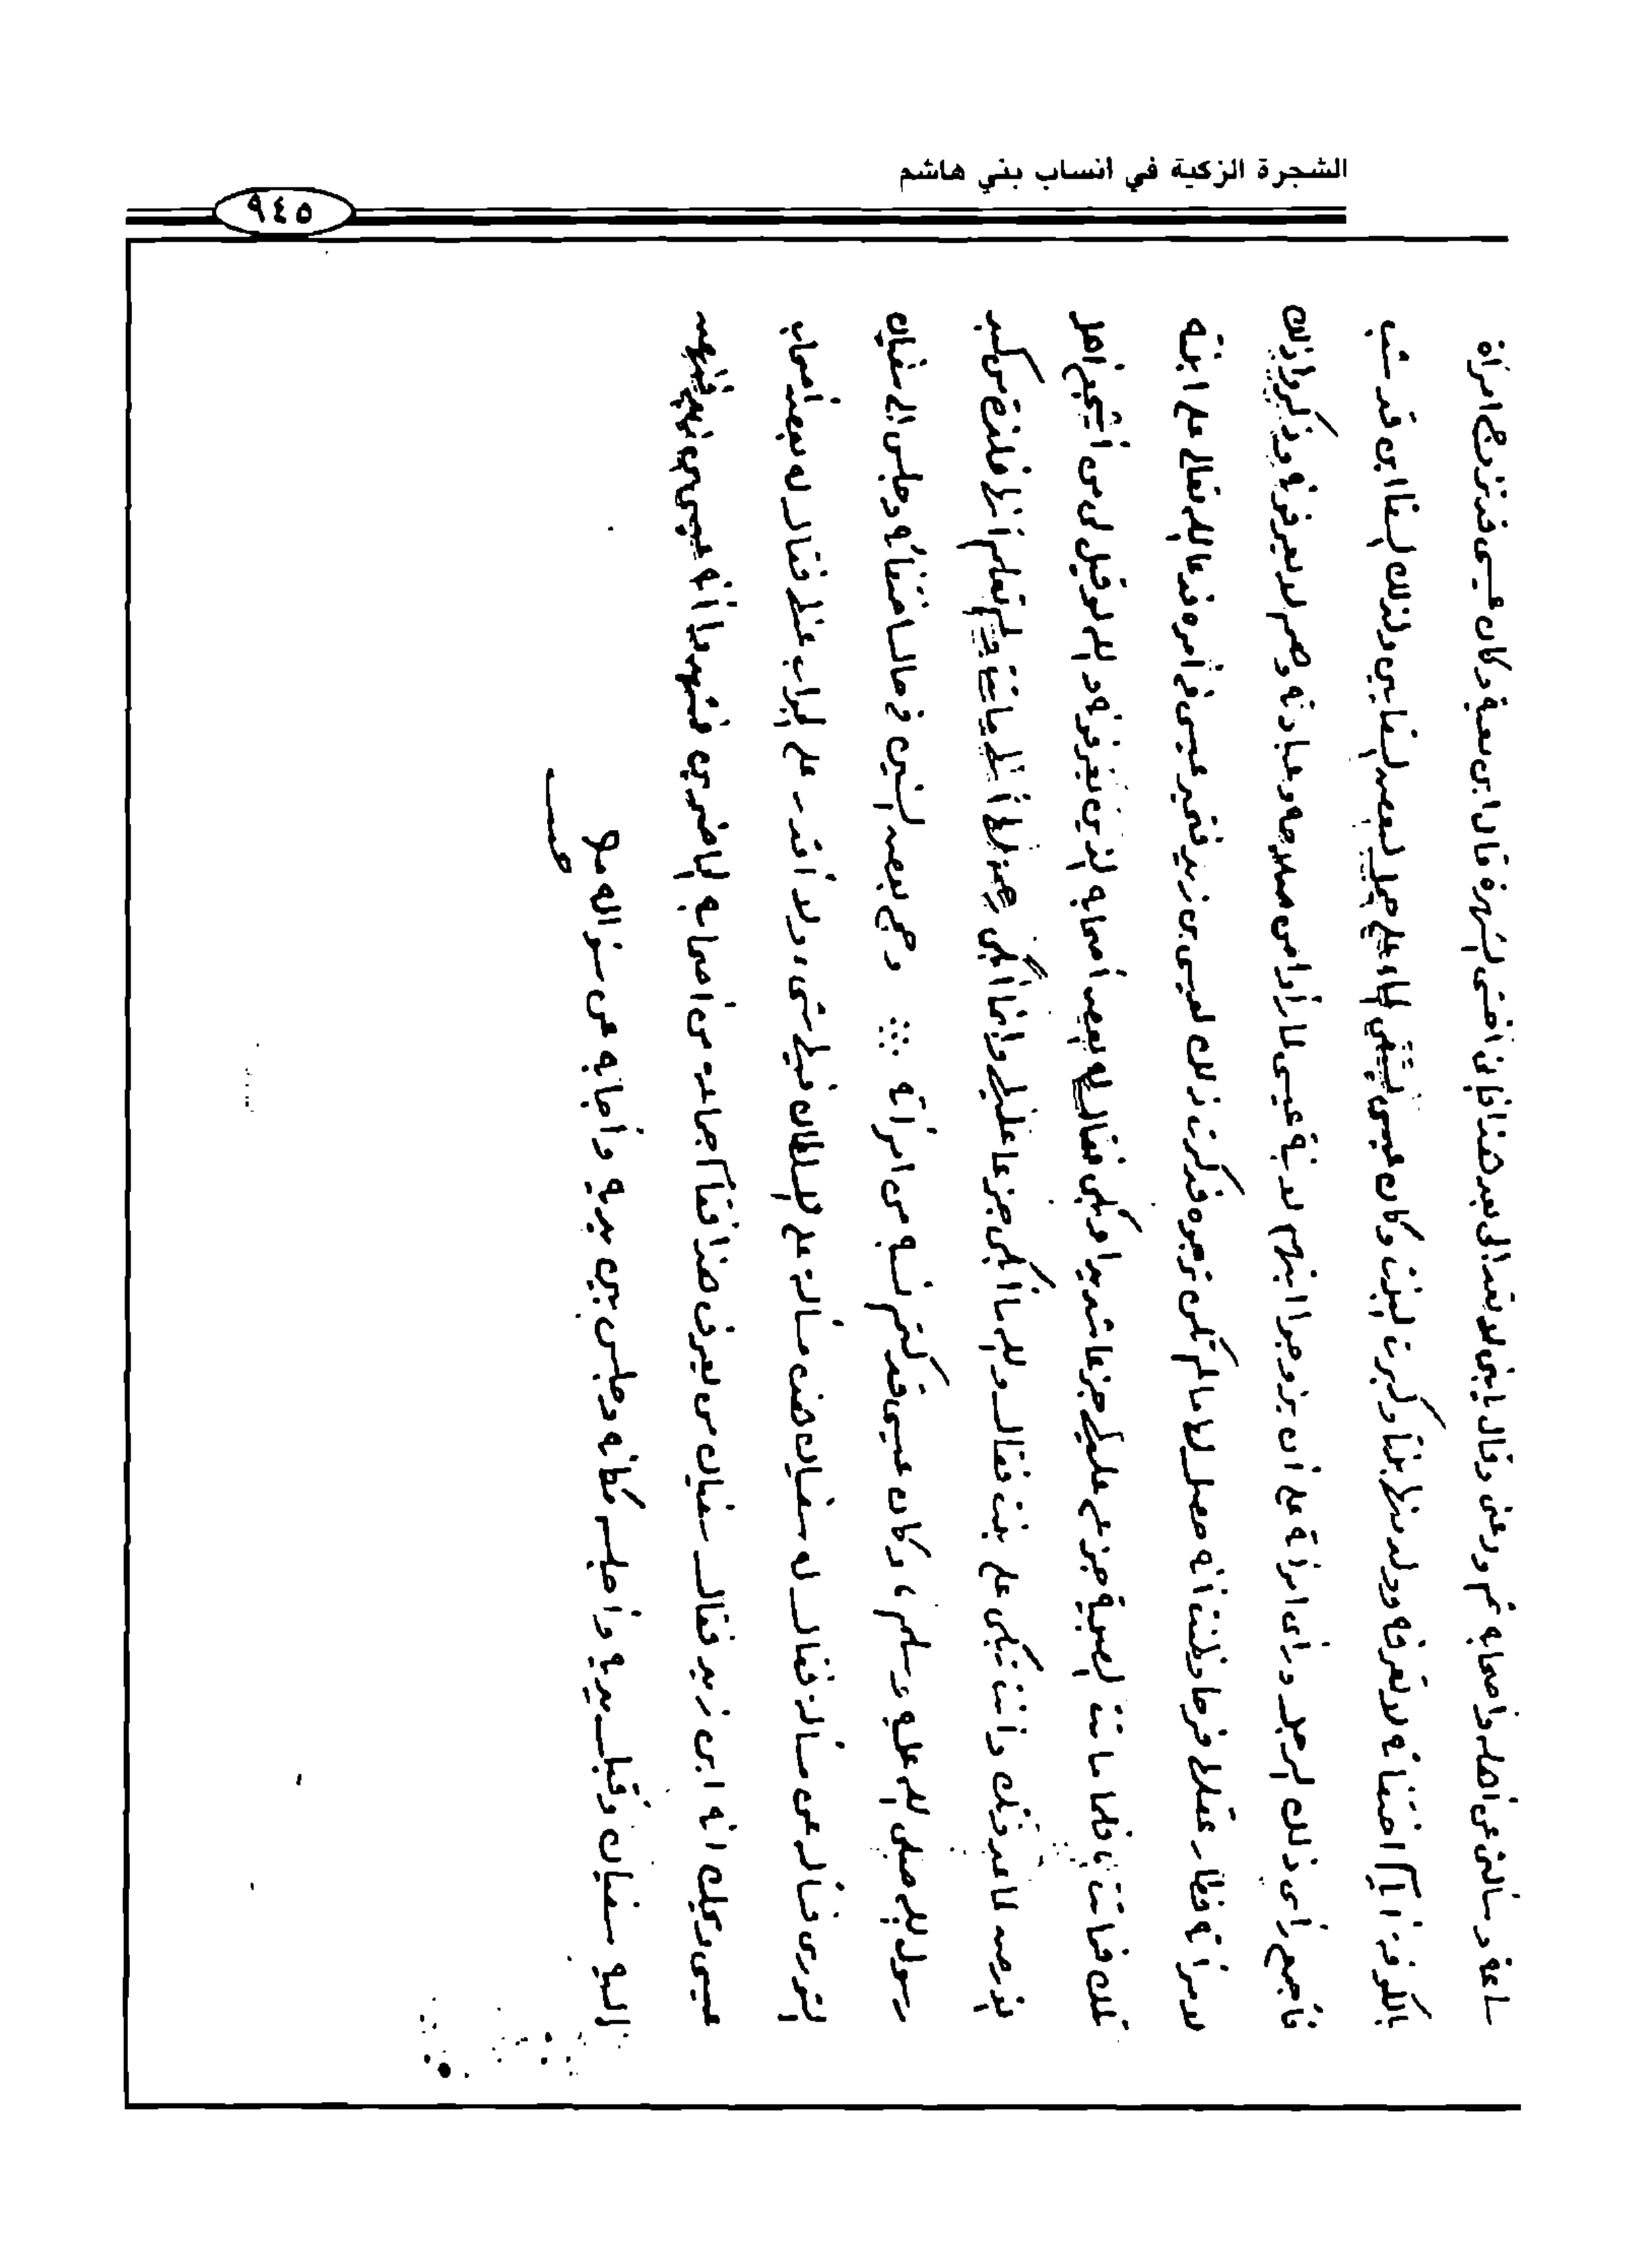 الشجرة الزكية في انساب بني هاشم
٩٤٥
ساعة وسألني عن أهله وأصحابه ثم ودعني وقال يا بني لا تعد الي بعد هذا فإني أخشى الشهرة قال ابن معية وكان عيسى قد تزوج امراة
بالكوفة ايام اختفائه لا تعرفه وولد منها بنتا وكبرت البنت وكان عيسى يستقي الماء على جمل لبعض السقايين ولذلك السقا ابن قد شب
فأجمع رأى ذلك الرجل ورأى امرأته على أن يزوجا ابنهما لابنة عيسى لما رأوا من صلاحه وعبادته وهم لا يعرفونه وذكروا ذلك
لامرأته فطار عقلها فرحا وظنت أنه حصل لها ما لم تكن ترجوه فذكرت ذلك لعيسى بن زيد فتحير عيسى في أمره فدعا الله تعالى على ابنته
تلك فماتت فلما ماتت الصبية جزع عليها جزعا شديدا وبكى فقال له بعض أصحابه الذين يعرفونه والله لو قيل لي من أشجع اهل
الارض لما عدوتك وأنت تبكي على بنت فقال والله ما ابكي جزعا عليها وانما أبكي رحمة لها انها ماتت ولم تعلم أنها فلذة من كبد
رسول الله صلى الله عليه وسلم، وكان عيسى قد كتم نسبه من امرأته ∴ وحج بعض السنين في حال اختفائه وجلس الى سفيان
الثوري فسأله عن مسألة فقال له سفيان هذه مسألة على السلطان فيها شيء ولا أقدر على الجواب عنها فقال له بعض أصحاب
عيسى ويحك انه ابن زيد فقال سفيان من يعرف هذا فقام جماعة من اصحابه الحاضرين فشهدوا أنه عيسى بن زيد فنهض
اليه سفيان وقبل يديه وأجلسه مكانه وجلس بين يديه وأجابه عن سؤاله